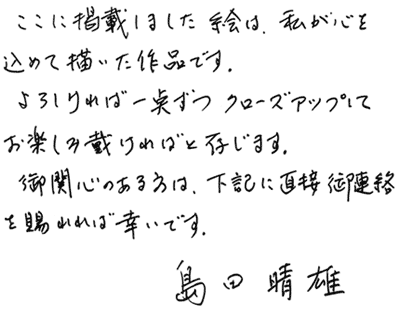 ここに掲載しました絵は、私が心を
込めて描いた作品です。
よろしければ一点ずつクローズアップして
お楽しみ戴ければと存じます。
御関心のある方は、下記に直接御連絡
を賜われれば幸いです。
島田晴雄